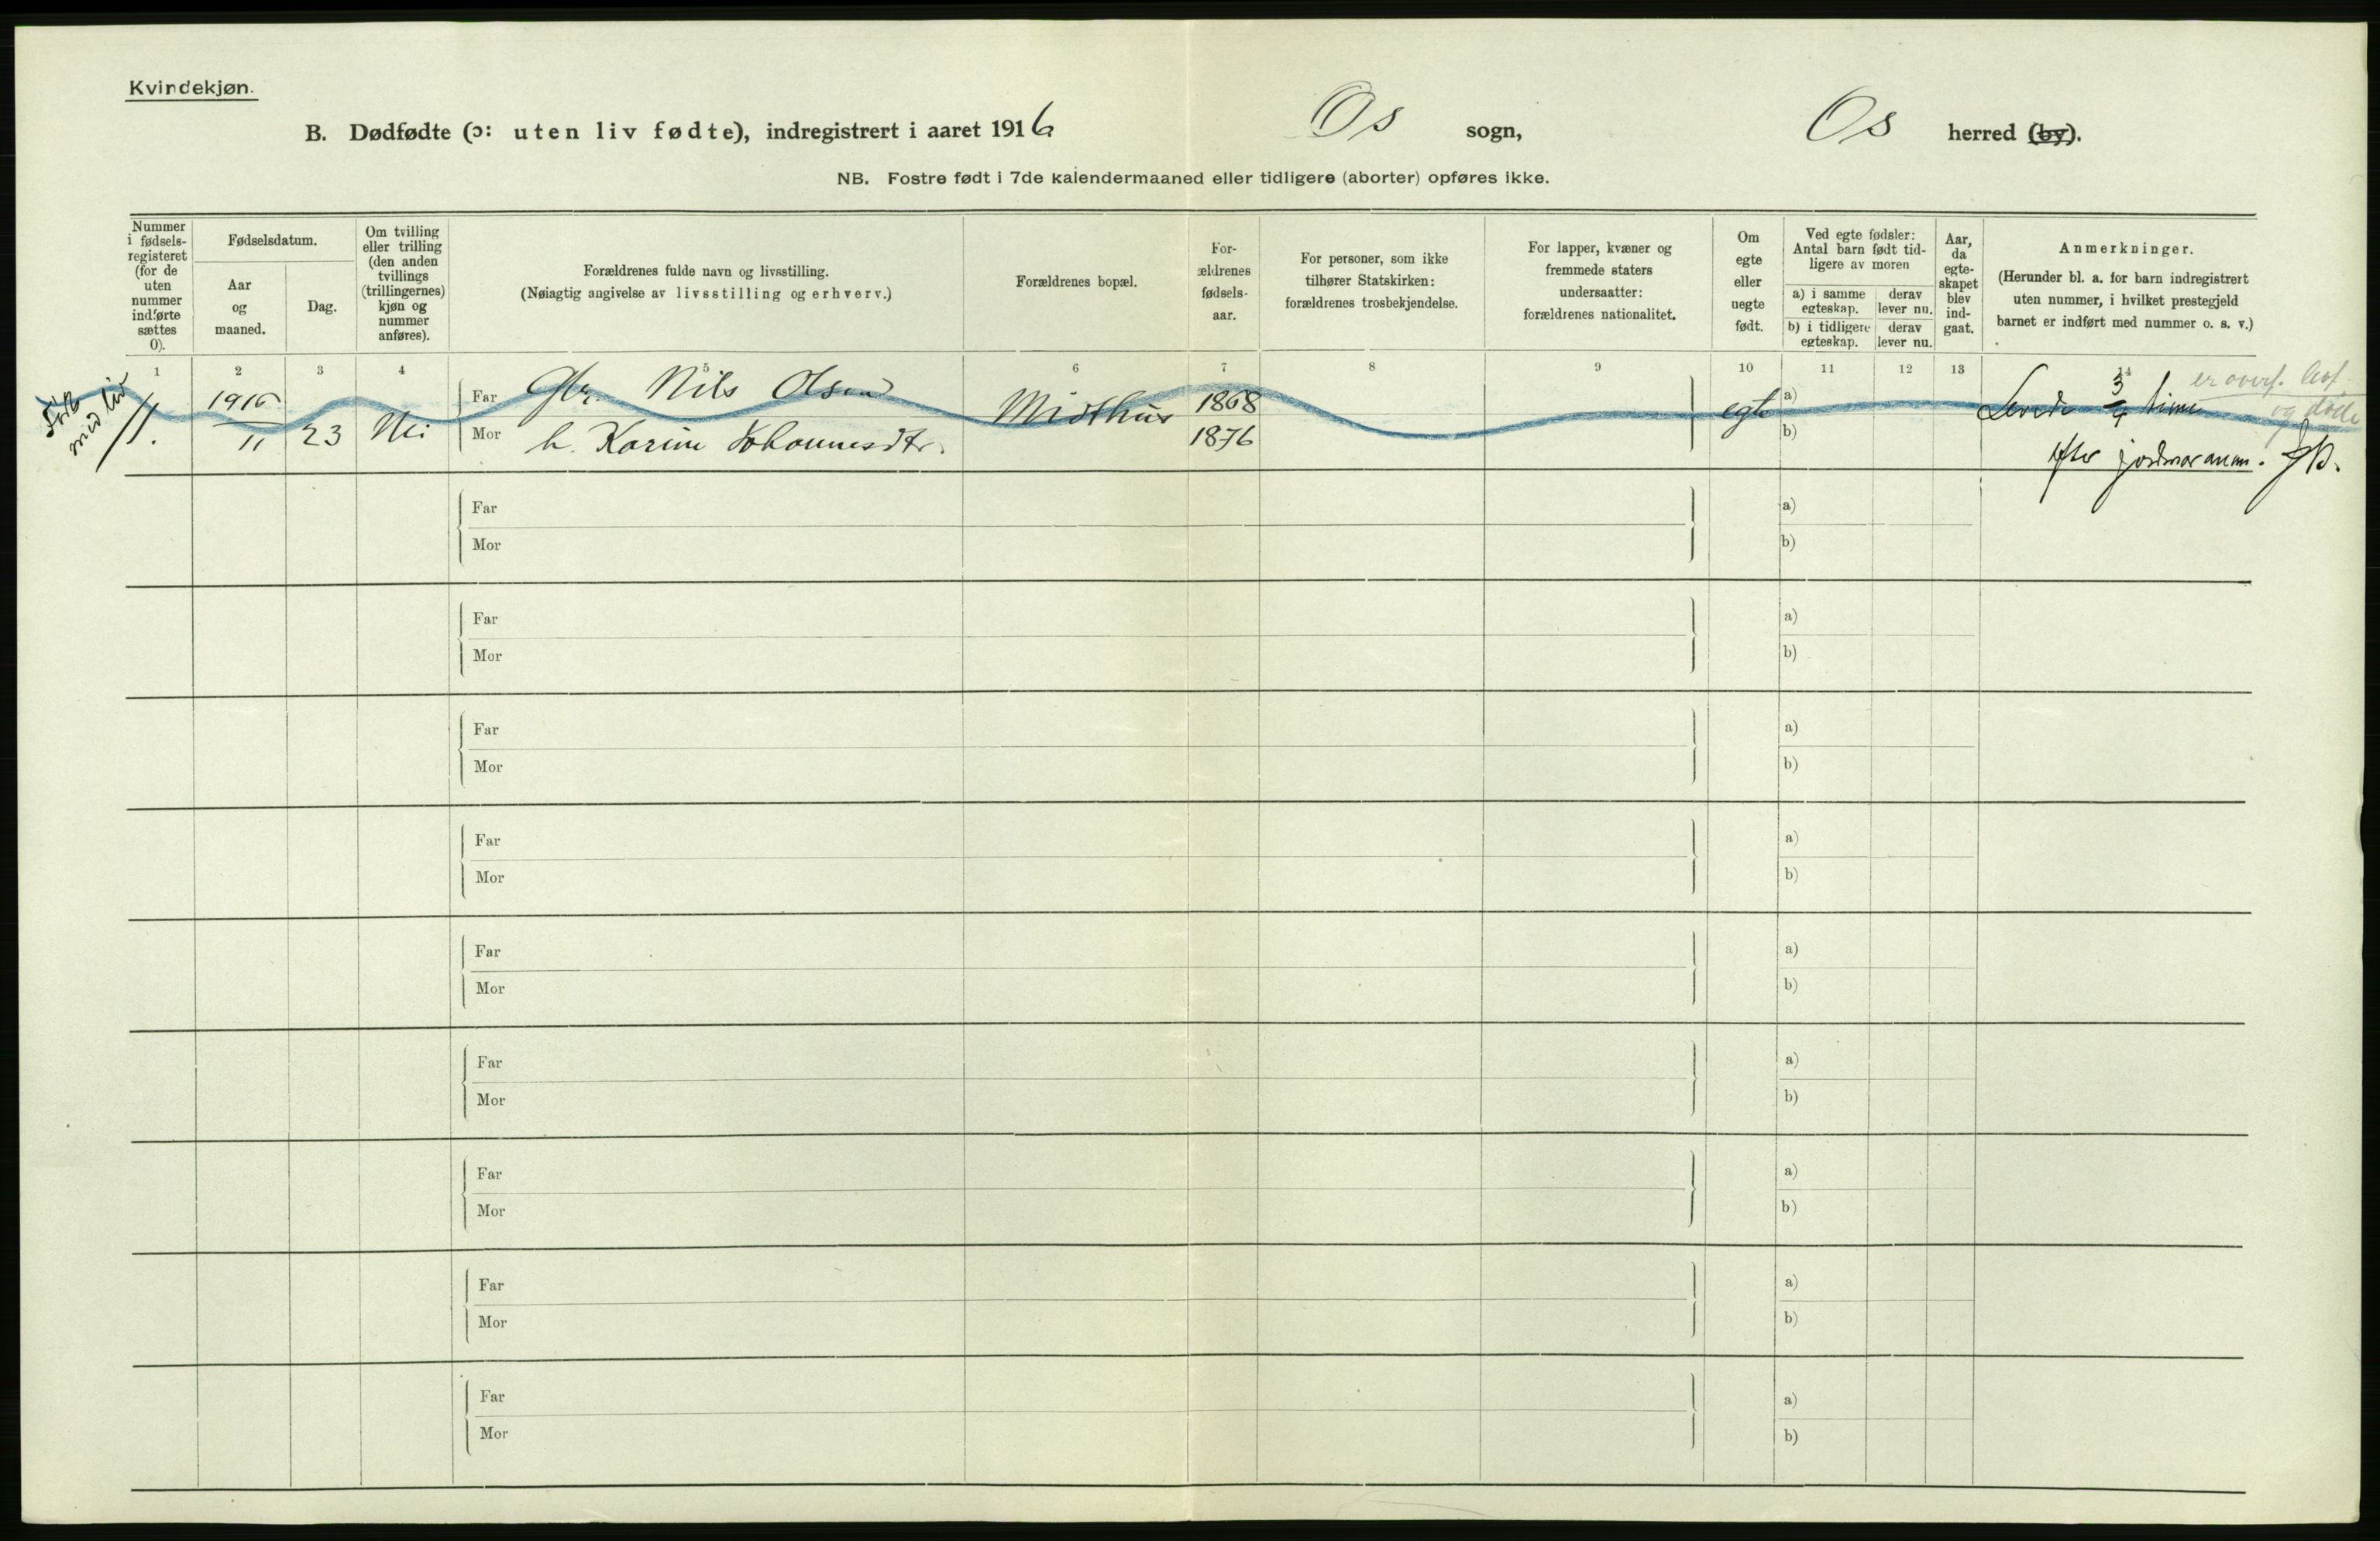 Kvindekjøn.
B. Dødfødte (ɔ: uten liv fødte), indregistrert i aaret 1916 Os sogn, Os herred (by).
NB. Fostre født i 7de kalendermaaned eller tidligere (aborter) opføres ikke.
Nummer i fødsels-registeret (for de uten nummer indførte sættes 0).
Fødselsdatum.
Aar og maaned.
Dag.
Om tvilling eller trilling (den anden tvillings (trillingernes) kjøn og nummer anføres).
Forældrenes fulde navn og livsstilling.
(Nøiagtig angivelse av livsstilling og erhverv.)
Forældrenes bopæl.
For-ældrenes fødsels-aar.
For personer, som ikke tilhører Statskirken: forældrenes trosbekjendelse.
For lapper, kvæner og fremmede staters undersaatter: forældrenes nationalitet.
Om egte eller uegte født.
Ved egte fødsler: Antal barn født tid-ligere av moren
a) i samme egteskap. derav lever nu.
b) i tidligere egteskap. derav lever nu.
Aar, da egte-skapet blev ind-gaat.
Anmerkninger.
(Herunder bl. a. for barn indregistrert uten nummer, i hvilket prestegjeld barnet er indført med nummer o. s. v.)
1 2 3 4 5 6 7 8 9 10 11 12 13 14
født med liv
1. 1916 II 23 Nei
Far Gbr. Nils Olsen Midthus 1868 egte a) Levede 3/4 time er overf. lev.f. og døde
Mor h. Karine Johannesdtr. 1876 b)
efter jordmoranm.
Far a)
Mor b)
Far a)
Mor b)
Far a)
Mor b)
Far a)
Mor b)
Far a)
Mor b)
Far a)
Mor b)
Far a)
Mor b)
Far a)
Mor b)
Far a)
Mor b)